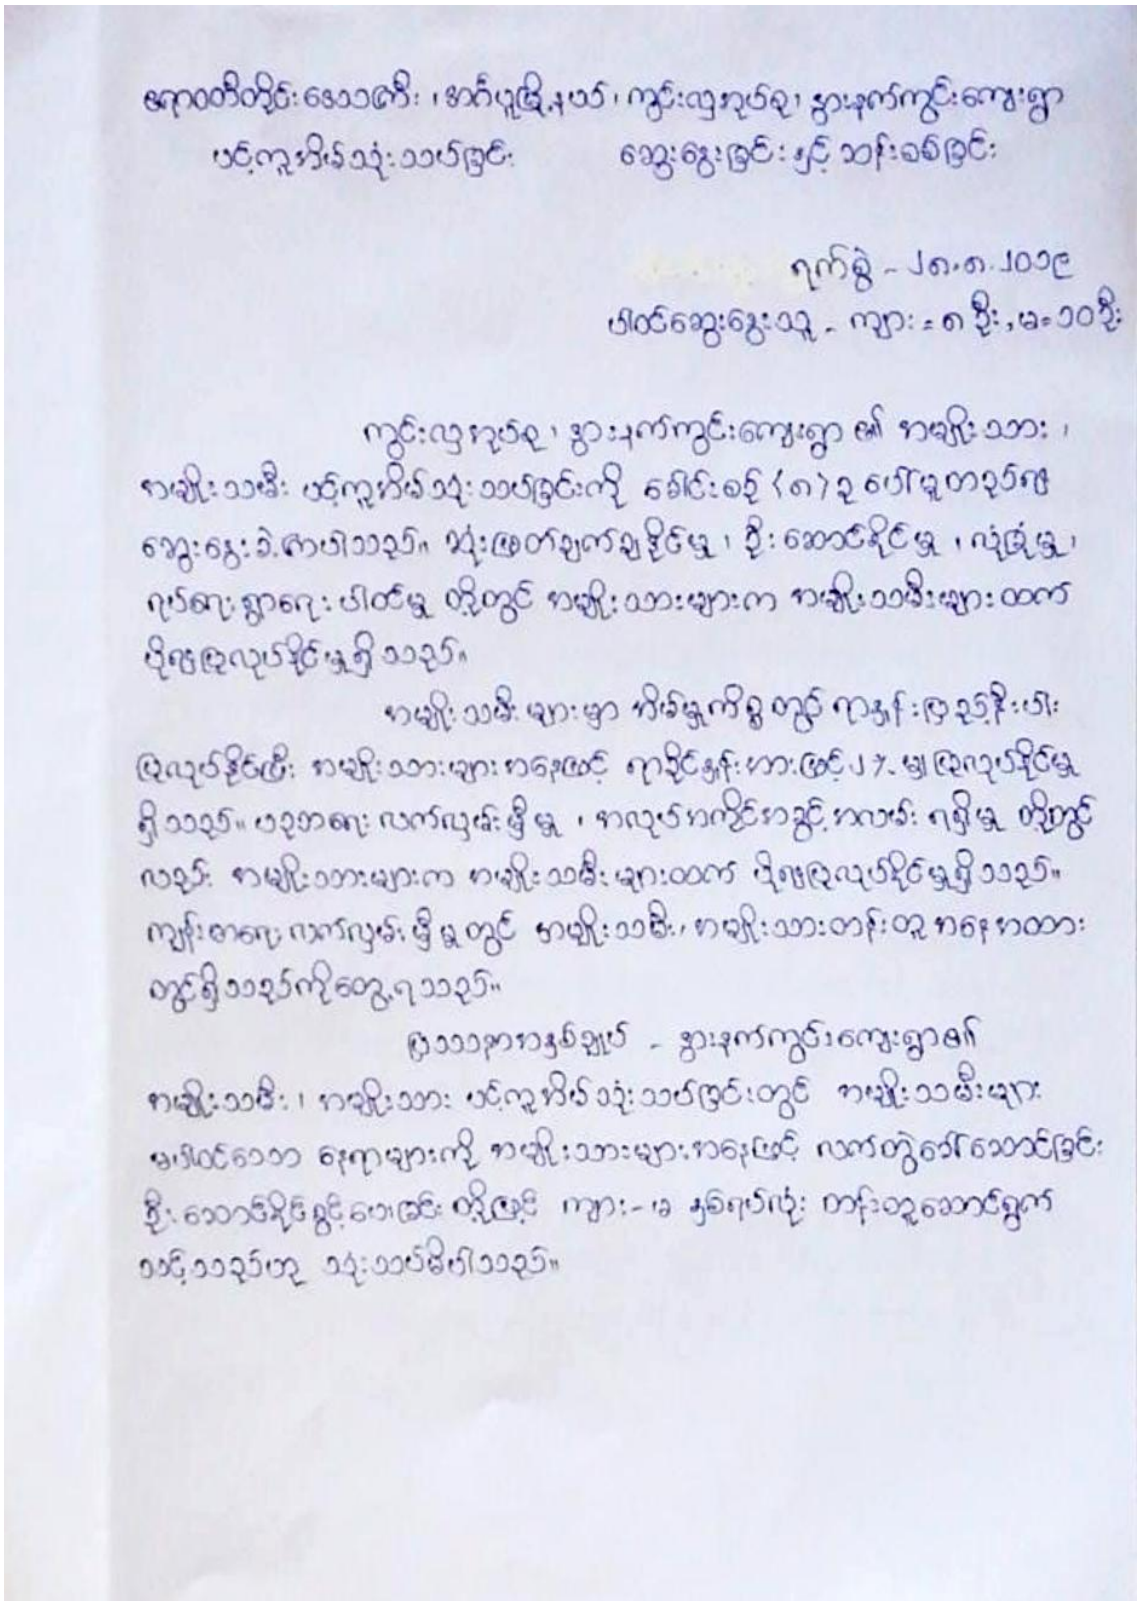 ဧရာဝတီတိုင်းဒေသကြီး ၊ အင်္ဂပူမြို့နယ် ၊ ကွင်းလှအုပ်စု ၊ နွားနက်ကွင်းကျေးရွာ
ပင့်ကူအိမ်သုံးသပ်ခြင်း ဆွေးနွေးခြင်းနှင့် ဆန်းစစ်ခြင်း
ရက်စွဲ - ၂၈.၈.၂၀၁၉
ပါဝင်ဆွေးနွေးသူ - ကျား = ၈ ဦး , မ = ၁၀ ဦး
ကွင်းလှအုပ်စု ၊ နွားနက်ကွင်းကျေးရွာ ၏ အမျိုးသား ၊
အမျိုးသမီး ပင့်ကူအိမ်သုံးသပ်ခြင်းကို ခေါင်းစဉ် (၈) ခု ပေါ်မူတည်၍
ဆွေးနွေးခဲ့ကြပါသည်။ ဆုံးဖြတ်ချက်ချနိုင်မှု ၊ ဦးဆောင်နိုင်မှု ၊ လုံခြုံမှု ၊
ရပ်ရေးရွာရေး ပါဝင်မှု တို့တွင် အမျိုးသားများက အမျိုးသမီးများထက်
ပို၍ပြုလုပ်နိုင်မှုရှိသည်။
အမျိုးသမီးများမှာ အိမ်မှုကိစ္စတွင် ရာနှုန်းပြည့်နီးပါး
ပြုလုပ်နိုင်ပြီး အမျိုးသားများအနေဖြင့် ရာခိုင်နှုန်းအားဖြင့် ၂ % မျှ ပြုလုပ်နိုင်မှု
ရှိသည်။ ပညာရေးလက်လှမ်းမှီမှု ၊ အလုပ်အကိုင်အခွင့်အလမ်း ရရှိမှု တို့တွင်
လည်း အမျိုးသားများက အမျိုးသမီးများထက် ပို၍ပြုလုပ်နိုင်မှုရှိသည်။
ကျန်းမာရေးလက်လှမ်းမှီမှုတွင် အမျိုးသမီး ၊ အမျိုးသားတန်းတူအနေအထား
တွင်ရှိသည်ကိုတွေ့ရသည်။
ပြဿနာအနှစ်ချုပ် - နွားနက်ကွင်းကျေးရွာ၏
အမျိုးသမီး ၊ အမျိုးသား ပင့်ကူအိမ်သုံးသပ်ခြင်းတွင် အမျိုးသမီးများ
မပါဝင်သော နေရာများကို အမျိုးသားများအနေဖြင့် လက်တွဲခေါ်ဆောင်ခြင်း
ဦးဆောင်နိုင်ခွင့်ပေးခြင်း တို့ဖြင့် ကျား-မ နှစ်ရပ်လုံး တန်းတူဆောင်ရွက်
သင့်သည်ဟု သုံးသပ်မိပါသည်။